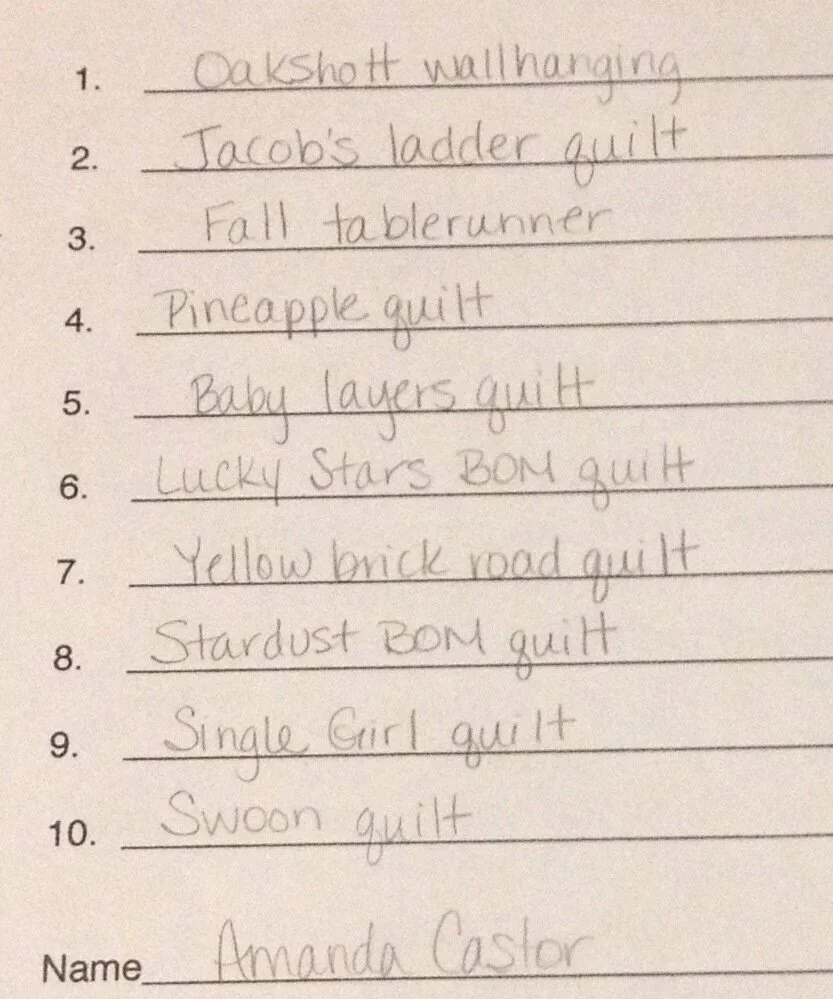 1. Oakshott wallhanging
2. Jacob's ladder quilt
3. Fall tablerunner
4. Pineapple quilt
5. Baby layers quilt
6. Lucky Stars BOM quilt
7. Yellow brick road quilt
8. Stardust BOM quilt
9. Single Girl quilt
10. Swoon quilt
Name Amanda Castor